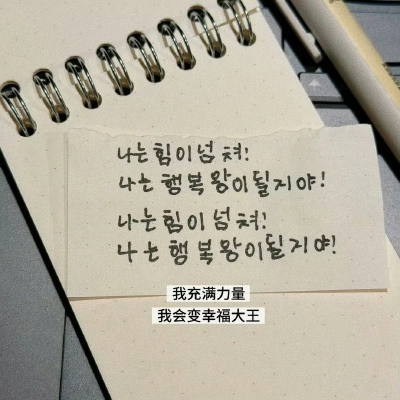 나는 힘이 넘쳐!
나는 행복왕이 될지야!
나는 힘이 넘쳐!
나는 행복왕이 될지야!
我充满力量
我会变幸福大王